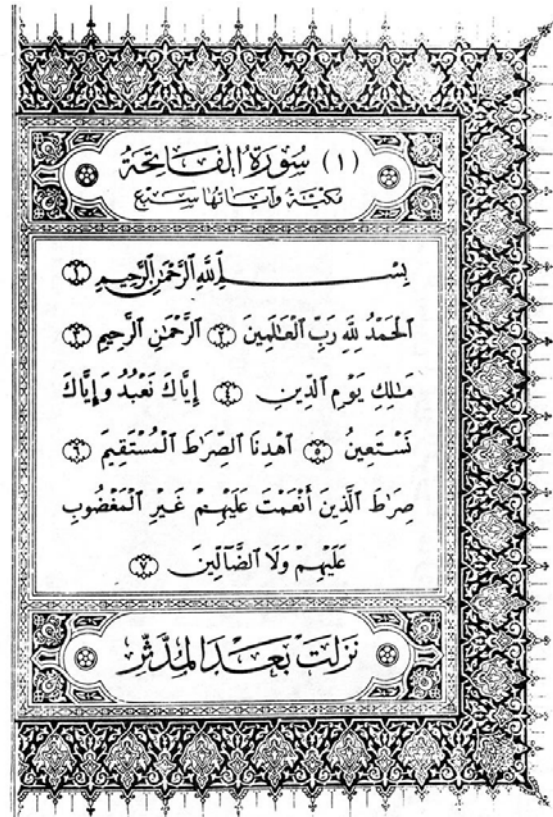 (١) سُورَةُ الفَاتِحَةُ
مَكِّيَّة وَآيَاتُهَا سَبْع
بِسْمِ ٱللَّهِ ٱلرَّحْمَٰنِ ٱلرَّحِيمِ ١
ٱلْحَمْدُ لِلَّهِ رَبِّ ٱلْعَٰلَمِينَ ٢ ٱلرَّحْمَٰنِ ٱلرَّحِيمِ ٣
مَٰلِكِ يَوْمِ ٱلدِّينِ ٤ إِيَّاكَ نَعْبُدُ وَإِيَّاكَ
نَسْتَعِينُ ٥ ٱهْدِنَا ٱلصِّرَٰطَ ٱلْمُسْتَقِيمَ ٦
صِرَٰطَ ٱلَّذِينَ أَنْعَمْتَ عَلَيْهِمْ غَيْرِ ٱلْمَغْضُوبِ
عَلَيْهِمْ وَلَا ٱلضَّآلِّينَ ٧
نَزَلَتْ بَعْدَ المُدَّثِّر